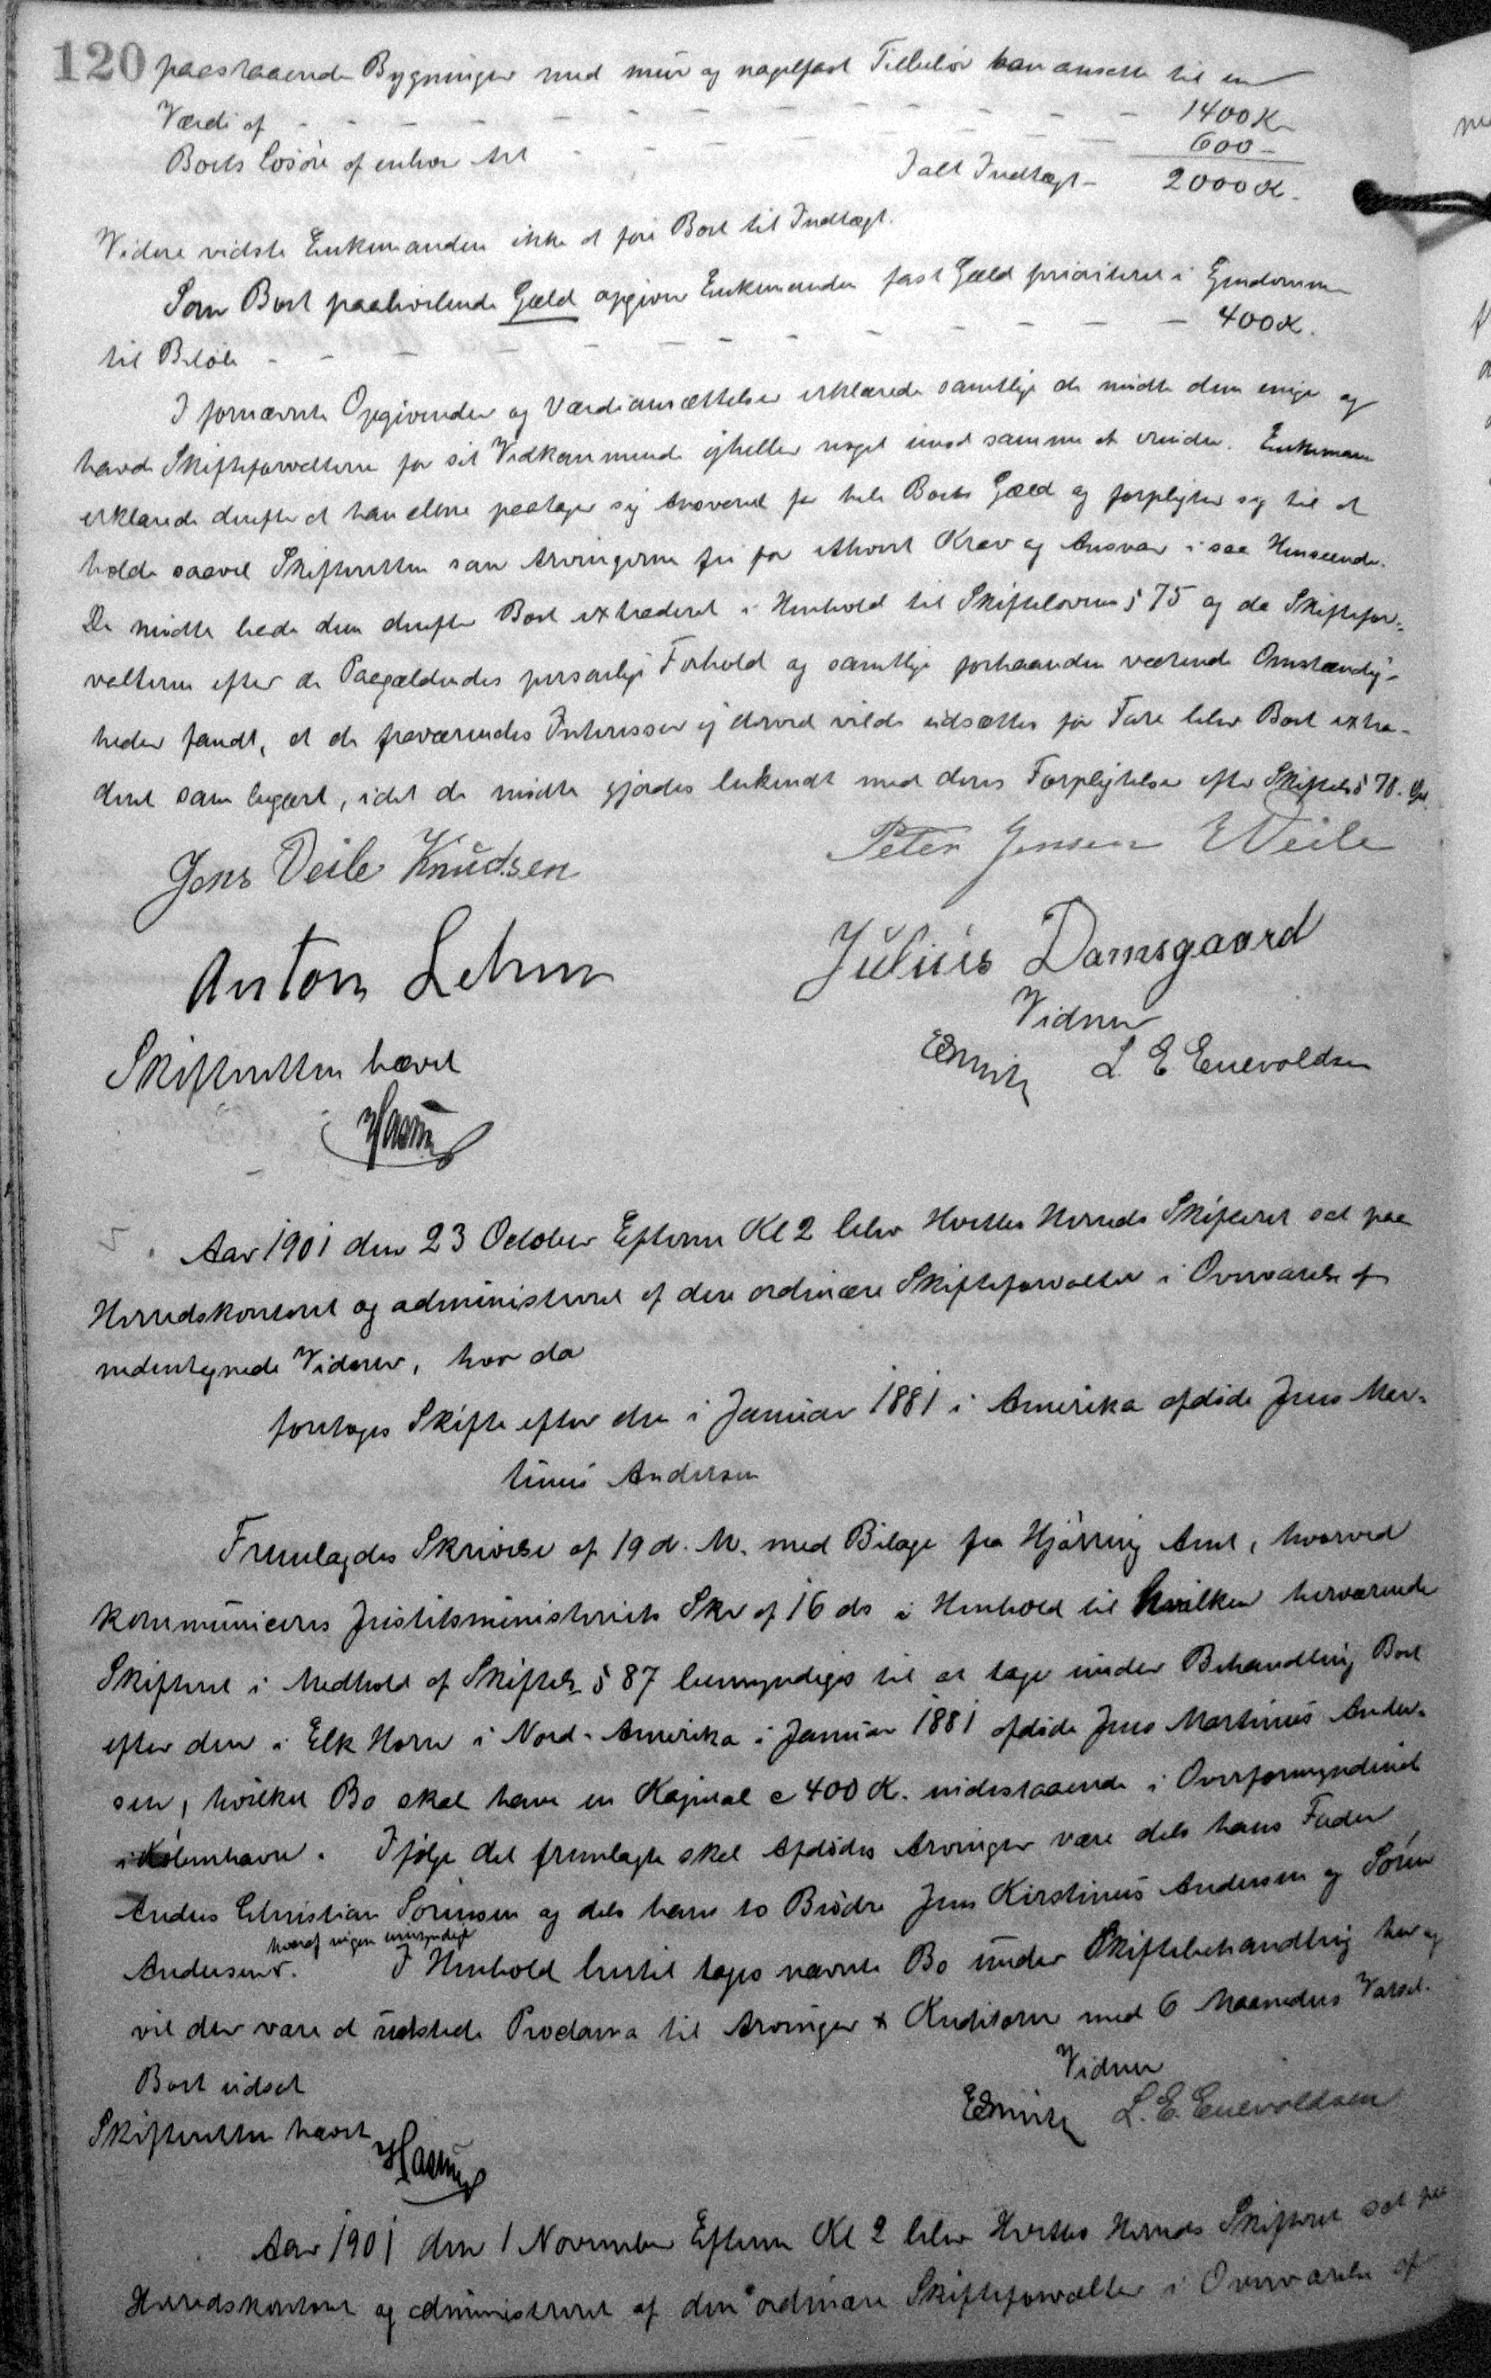 120 paastaaende Bygninger med mur og nagelfast Tilbehør han ansatte til en
Værdi af - - - - - - - - - - 1400 K
Boets Løsøre af enhver Art - - - - 600 -
Ialt Indtægt - 2000 K.
Videre vidste Enkemanden ikke at føre Boet til Indtægt.
Som Boet paahvilende Gæld opgiver Enkemanden fast Gæld prioriteret i Ejendommen
til Beløb - - - - - - - - - - 400 K.
I fornævnte Opgivender og Værdiansættelser erklærede samtlige de mødte dem enige og
havde Skifteforvalteren for sit Vedkommende ejheller noget imod samme at erindre. Enkemanden
erklærede derefter at han alene paatager sig Ansvaret for hele Boets Gæld og forpligter sig til at
holde saavel Skifteretten som Arvingerne fri for ethvert Krav og Ansvar i saa Henseende.
De mødte bede dem derefter Boet extraderet i Henhold til Skiftelovens § 75 og da Skiftefor-
valteren efter de Paagældendes personlige Forhold og samtlige forhaanden værende Omstændig-
heder fandt, at de fraværendes Interesser ej derved vilde udsættes for Fare blev Boet extra-
deret som begært, idet de mødte gjordes bekendt med deres Forpligtelser efter Skiftels § 78.
Jens Veile Knudsen
Peter Jensen Weile
Anton Lehm
Julius Damsgaard
Vidner
L. E. Enevoldsen
Skifteretten hævet
Aar 1901 den 23 October Efterm Kl 2 blev Hvetbo Herreds Skifteret sat paa
Herredskontoret og administreret af den ordinære Skifteforvalter i Overværelse af
nedentegnede Vidner, hvor da
foretoges Skifte efter den i Januar 1881 i Amerika afdøde Jens Mar-
tinus Andersen
Fremlagdes Skrivelse af 19 d. M. med Bilage fra Hjørring Amt, hvorved
kommuniceres Justitsministeriets Skr af 16 ds i Henhold til hvilken herværende
Skifteret i Medhold af Skiftels § 87 bemyndiges til at tage under Behandling Boet
efter den i Elk Horn i Nord-Amerika i Januar 1881 afdøde Jens Martinus Ander-
sen, hvilket Bo skal have en Kapital c 400 K. indestaaende i Overformynderiet
i København. Ifølge det fremlagte skal Afdødes Arvinger være dels hans Fader
Anders Christian Sørensen og dels hans to Brødre Jens Kirstinus Andersen og Søren
hvoraf ingen umyndige
Andersen. I Henhold hertil tages nævnte Bo under Skiftebehandling her og
vil der være at udstede Proclama til Arvinger & Kreditorer med 6 Maaneders Varsel.
Boet udsat
Vidner
L. E. Enevoldsen
Skifteretten hævet
Aar 1901 den 1 November Efterm Kl 2 blev Hvetbo Herreds Skifteret sat paa
Herredskontoret og administreret af den ordinære Skifteforvalter i Overværelse af